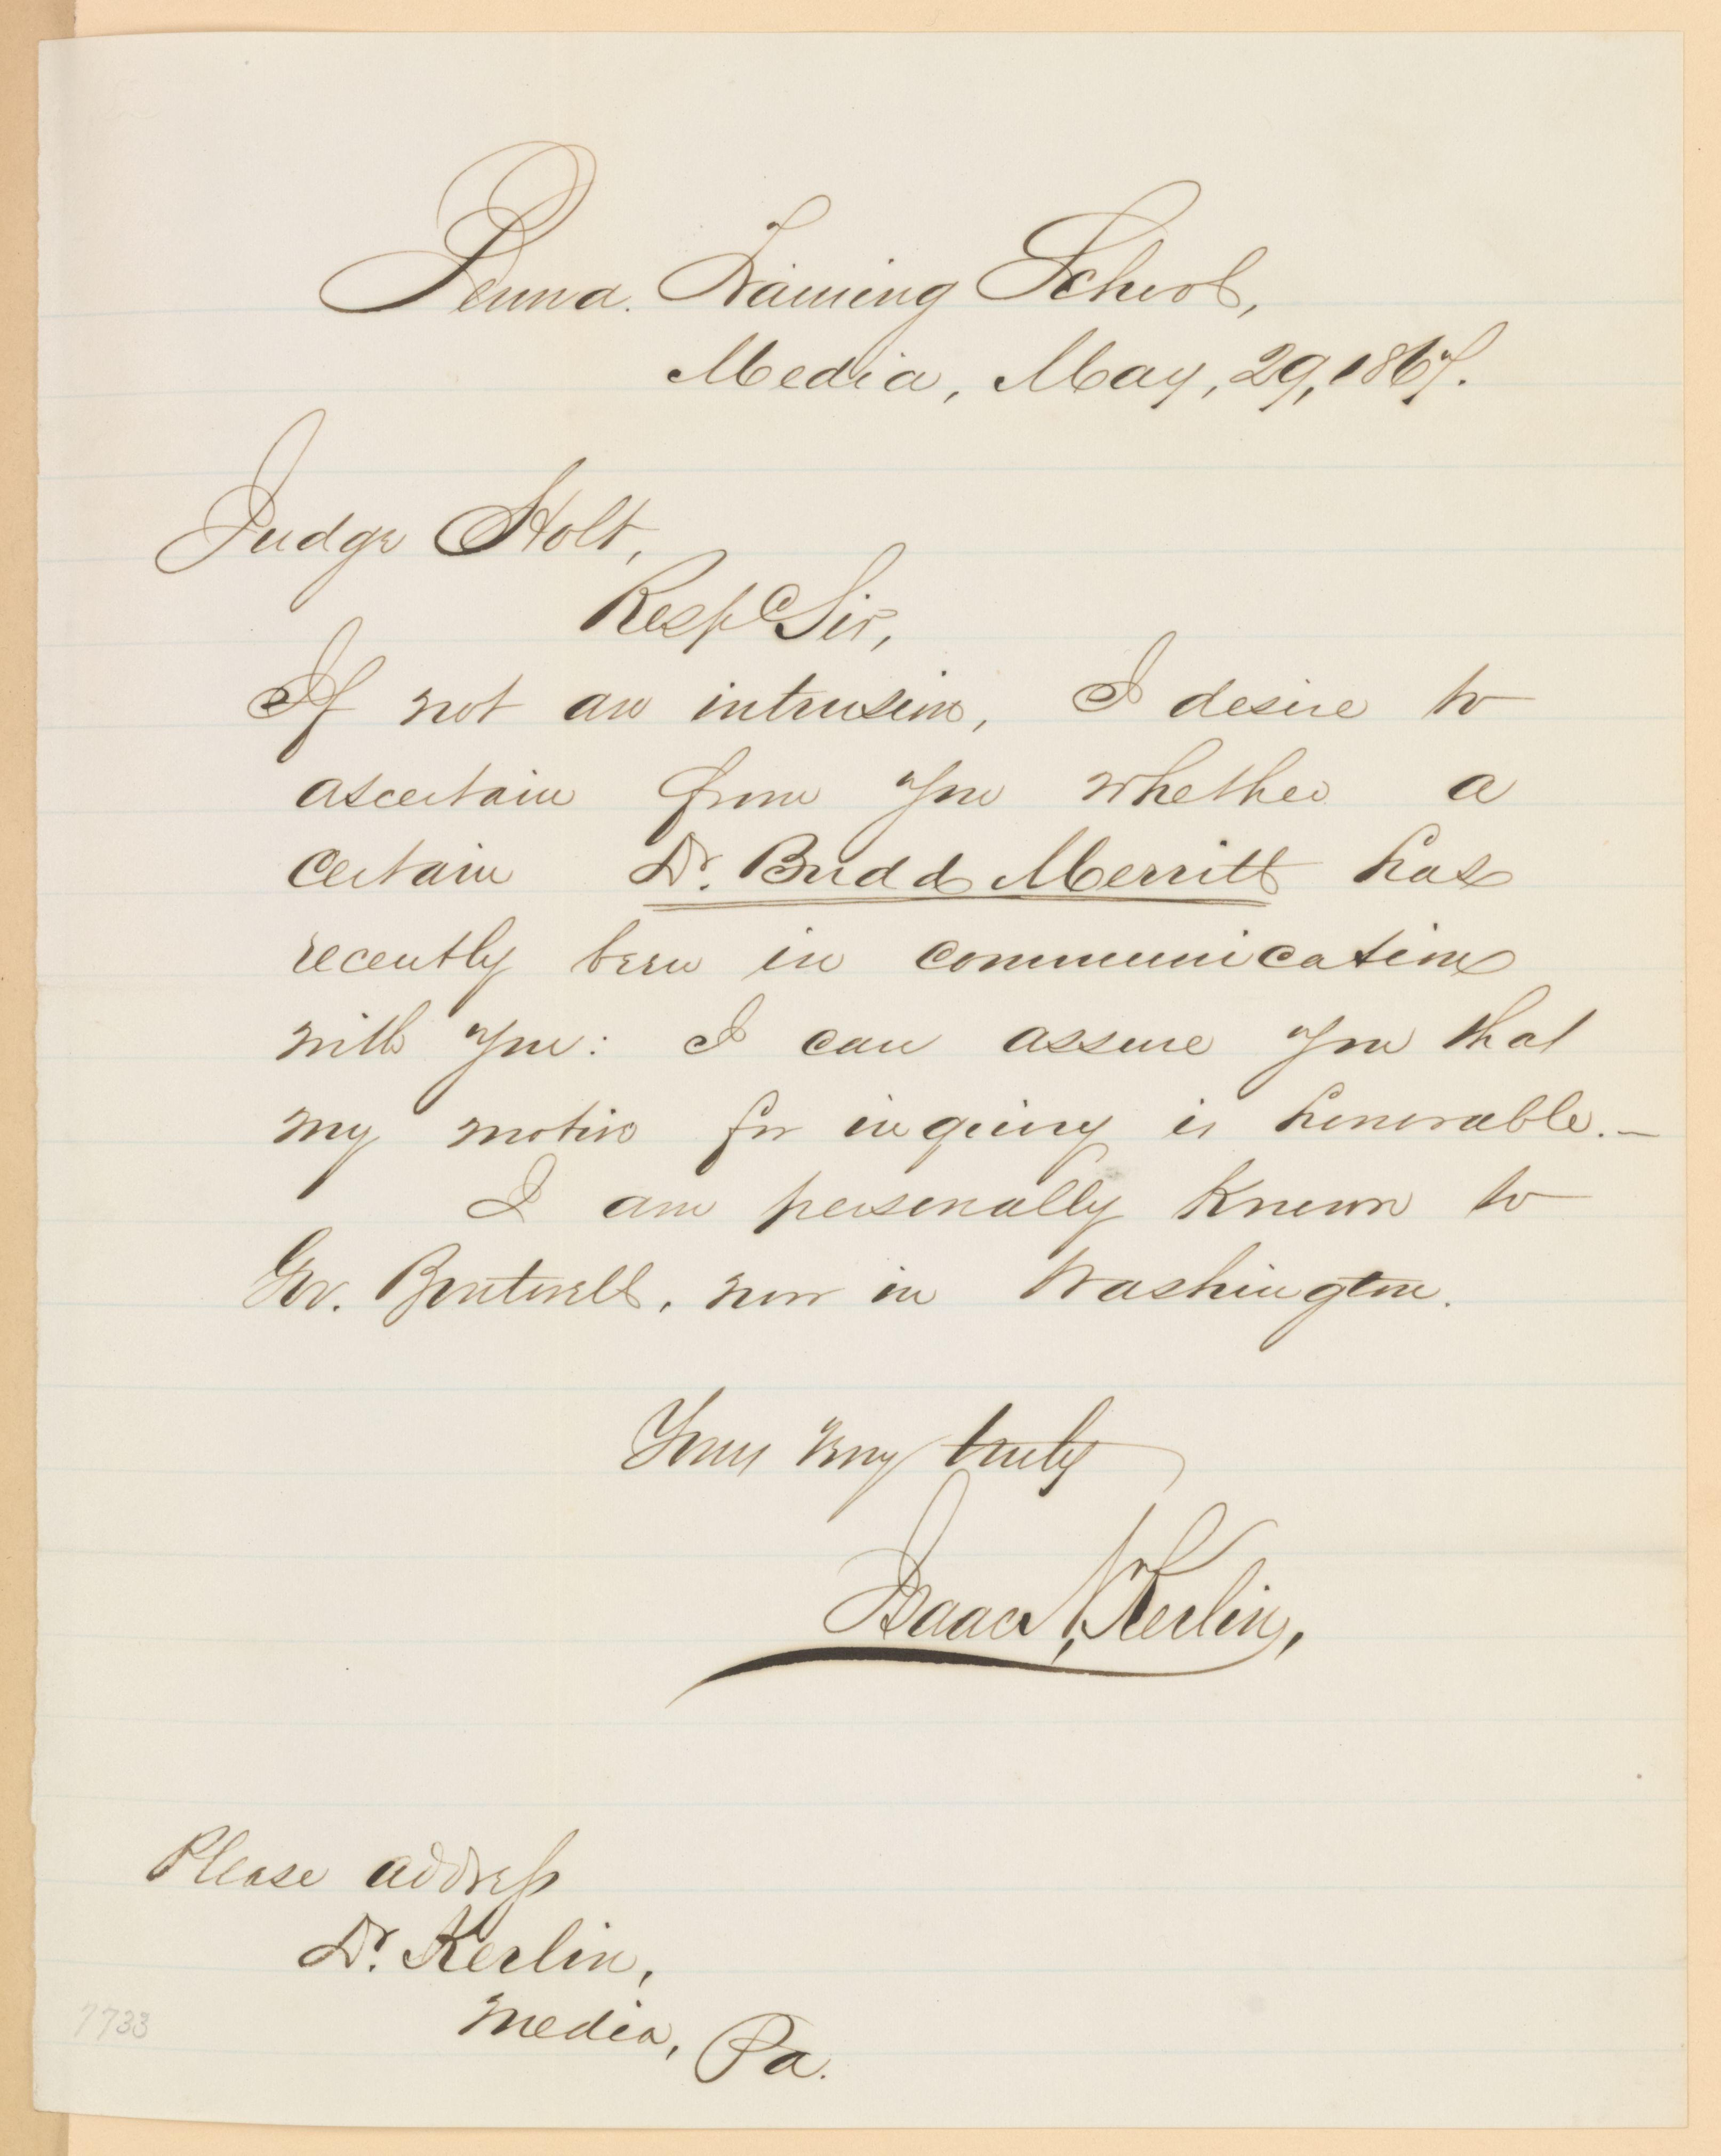 Penna. Training School,
Media, May, 29, 1867.
Judge Holt,
Resp Sir,
If not an intrusion, I desire to
ascertain from you whether a
certain Dr. Budd Merritt has
recently been in communication
with you: I can assure you that
my motive for inquiry is honorable. —
I am personally known to
Gov. Boutwell, now in Washington.
Yours very truly
Isaac N. Kerlin,
Please address
Dr. Kerlin,
Media, Pa.
7733